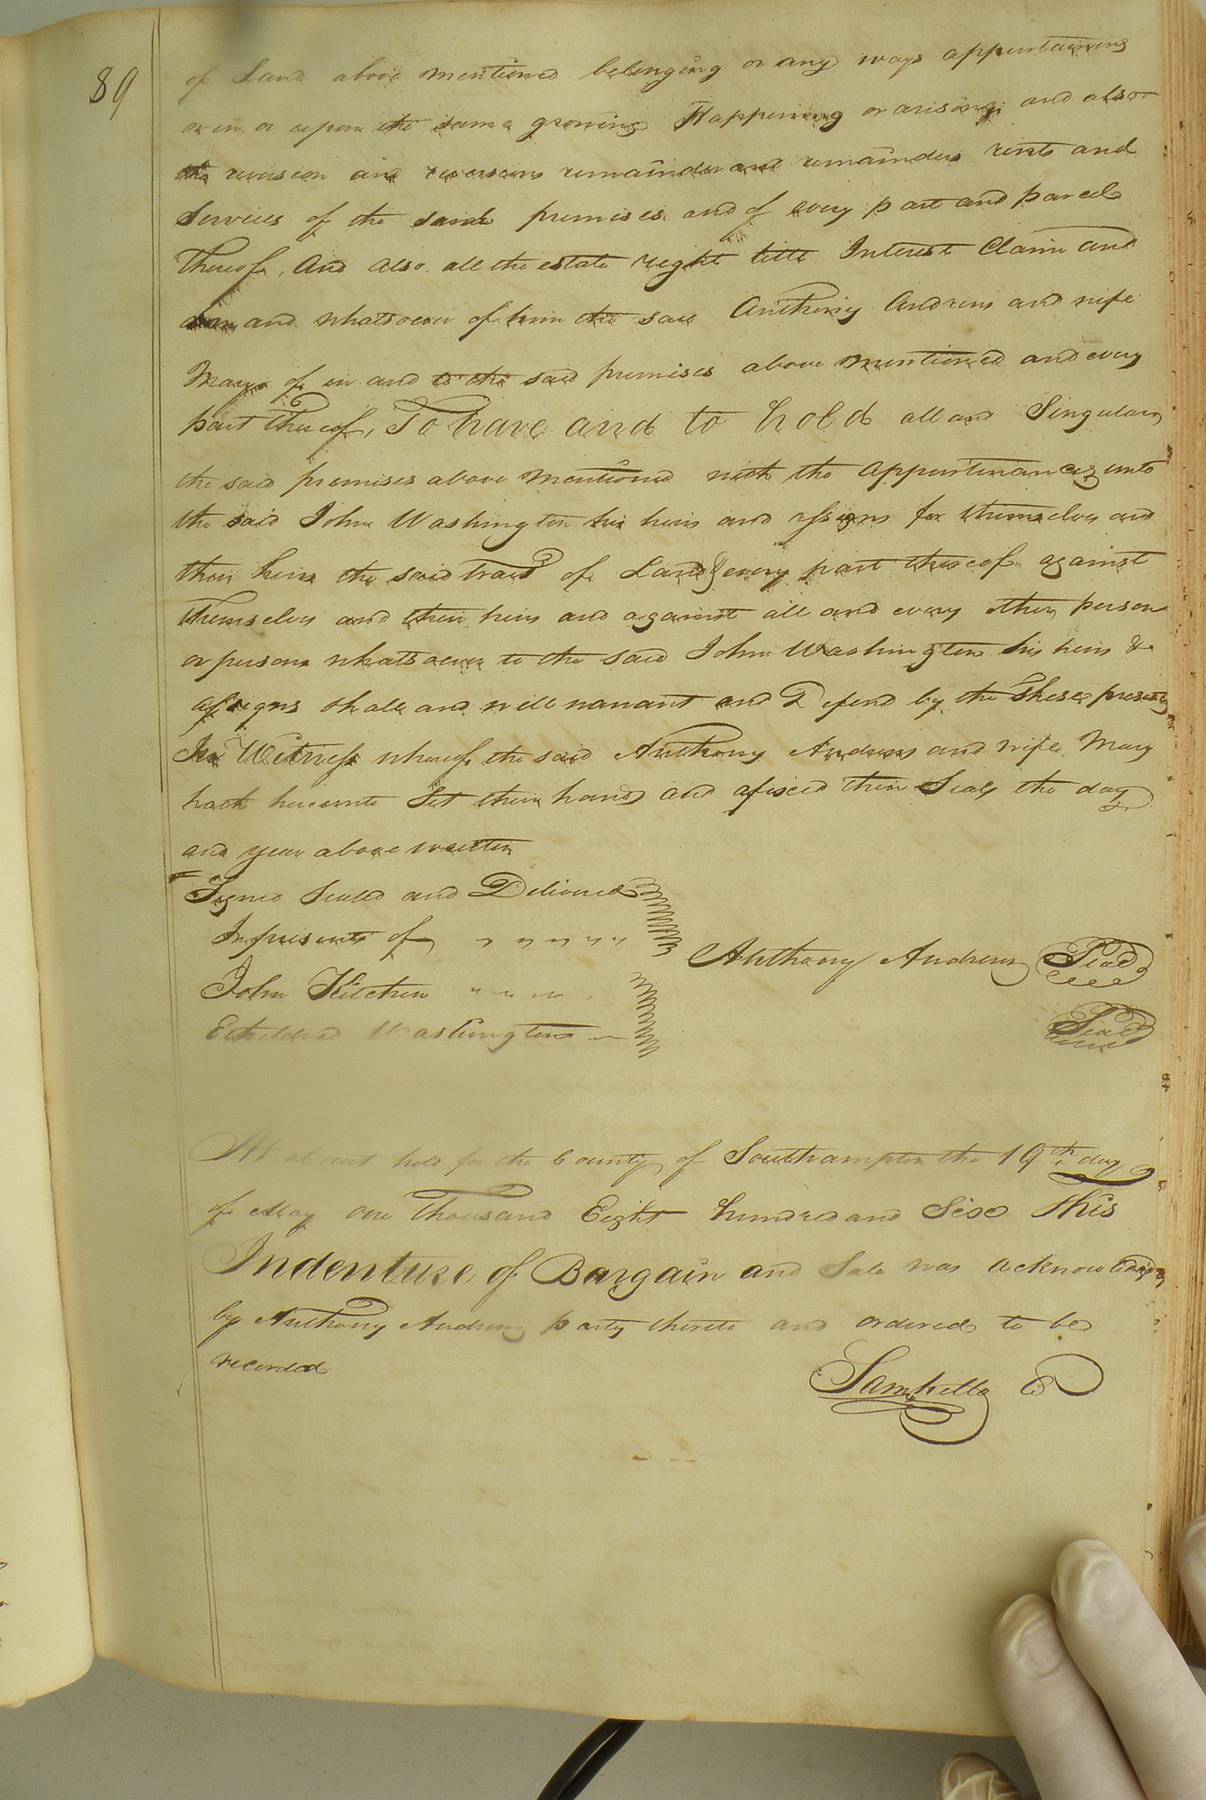 89
of Land above mentioned belonging or any ways appurtaining
or in or uepon the same growing Happening or arising and also
the revision and reversions remainder and remainders rents and
Services of the same premises and of every part and parcel
Thereof, And also all the estate right title Interest Claim and
and whatsoever of him the said Anthony Andrews and wife
Mary of in and to the said premises above mentioned and every
part Thereof, To have and to hold all and Singular
the said premises above mentioned with the appurtenances unto
the said John Washington his heirs and assigns for themselves and
their heirs the said tract of Land & every part thereof against
Themselves and their heirs and against all and every other person
or persons whatsoever to the said John Washington his heirs &
assigns shall and will warrant and Defend by the These presents
In Witness whereof the said Anthony Andrews and wife Mary
hath hereunto Set their hands and afixed their Seals the day
and year above written
Signed Sealed and Delivered
In presents of " " " " "
Anthony Andrews Seal
John Kitchen " " " "
Etheldred Washington
Seal
At a Court held for the County of Southampton the 19th day
of May one Thousand Eight hundred and Six This
Indenture of Bargain and Sale was acknowledged
by Anthony Andrews party thereto and ordered to be
recorded
Sam Kello C